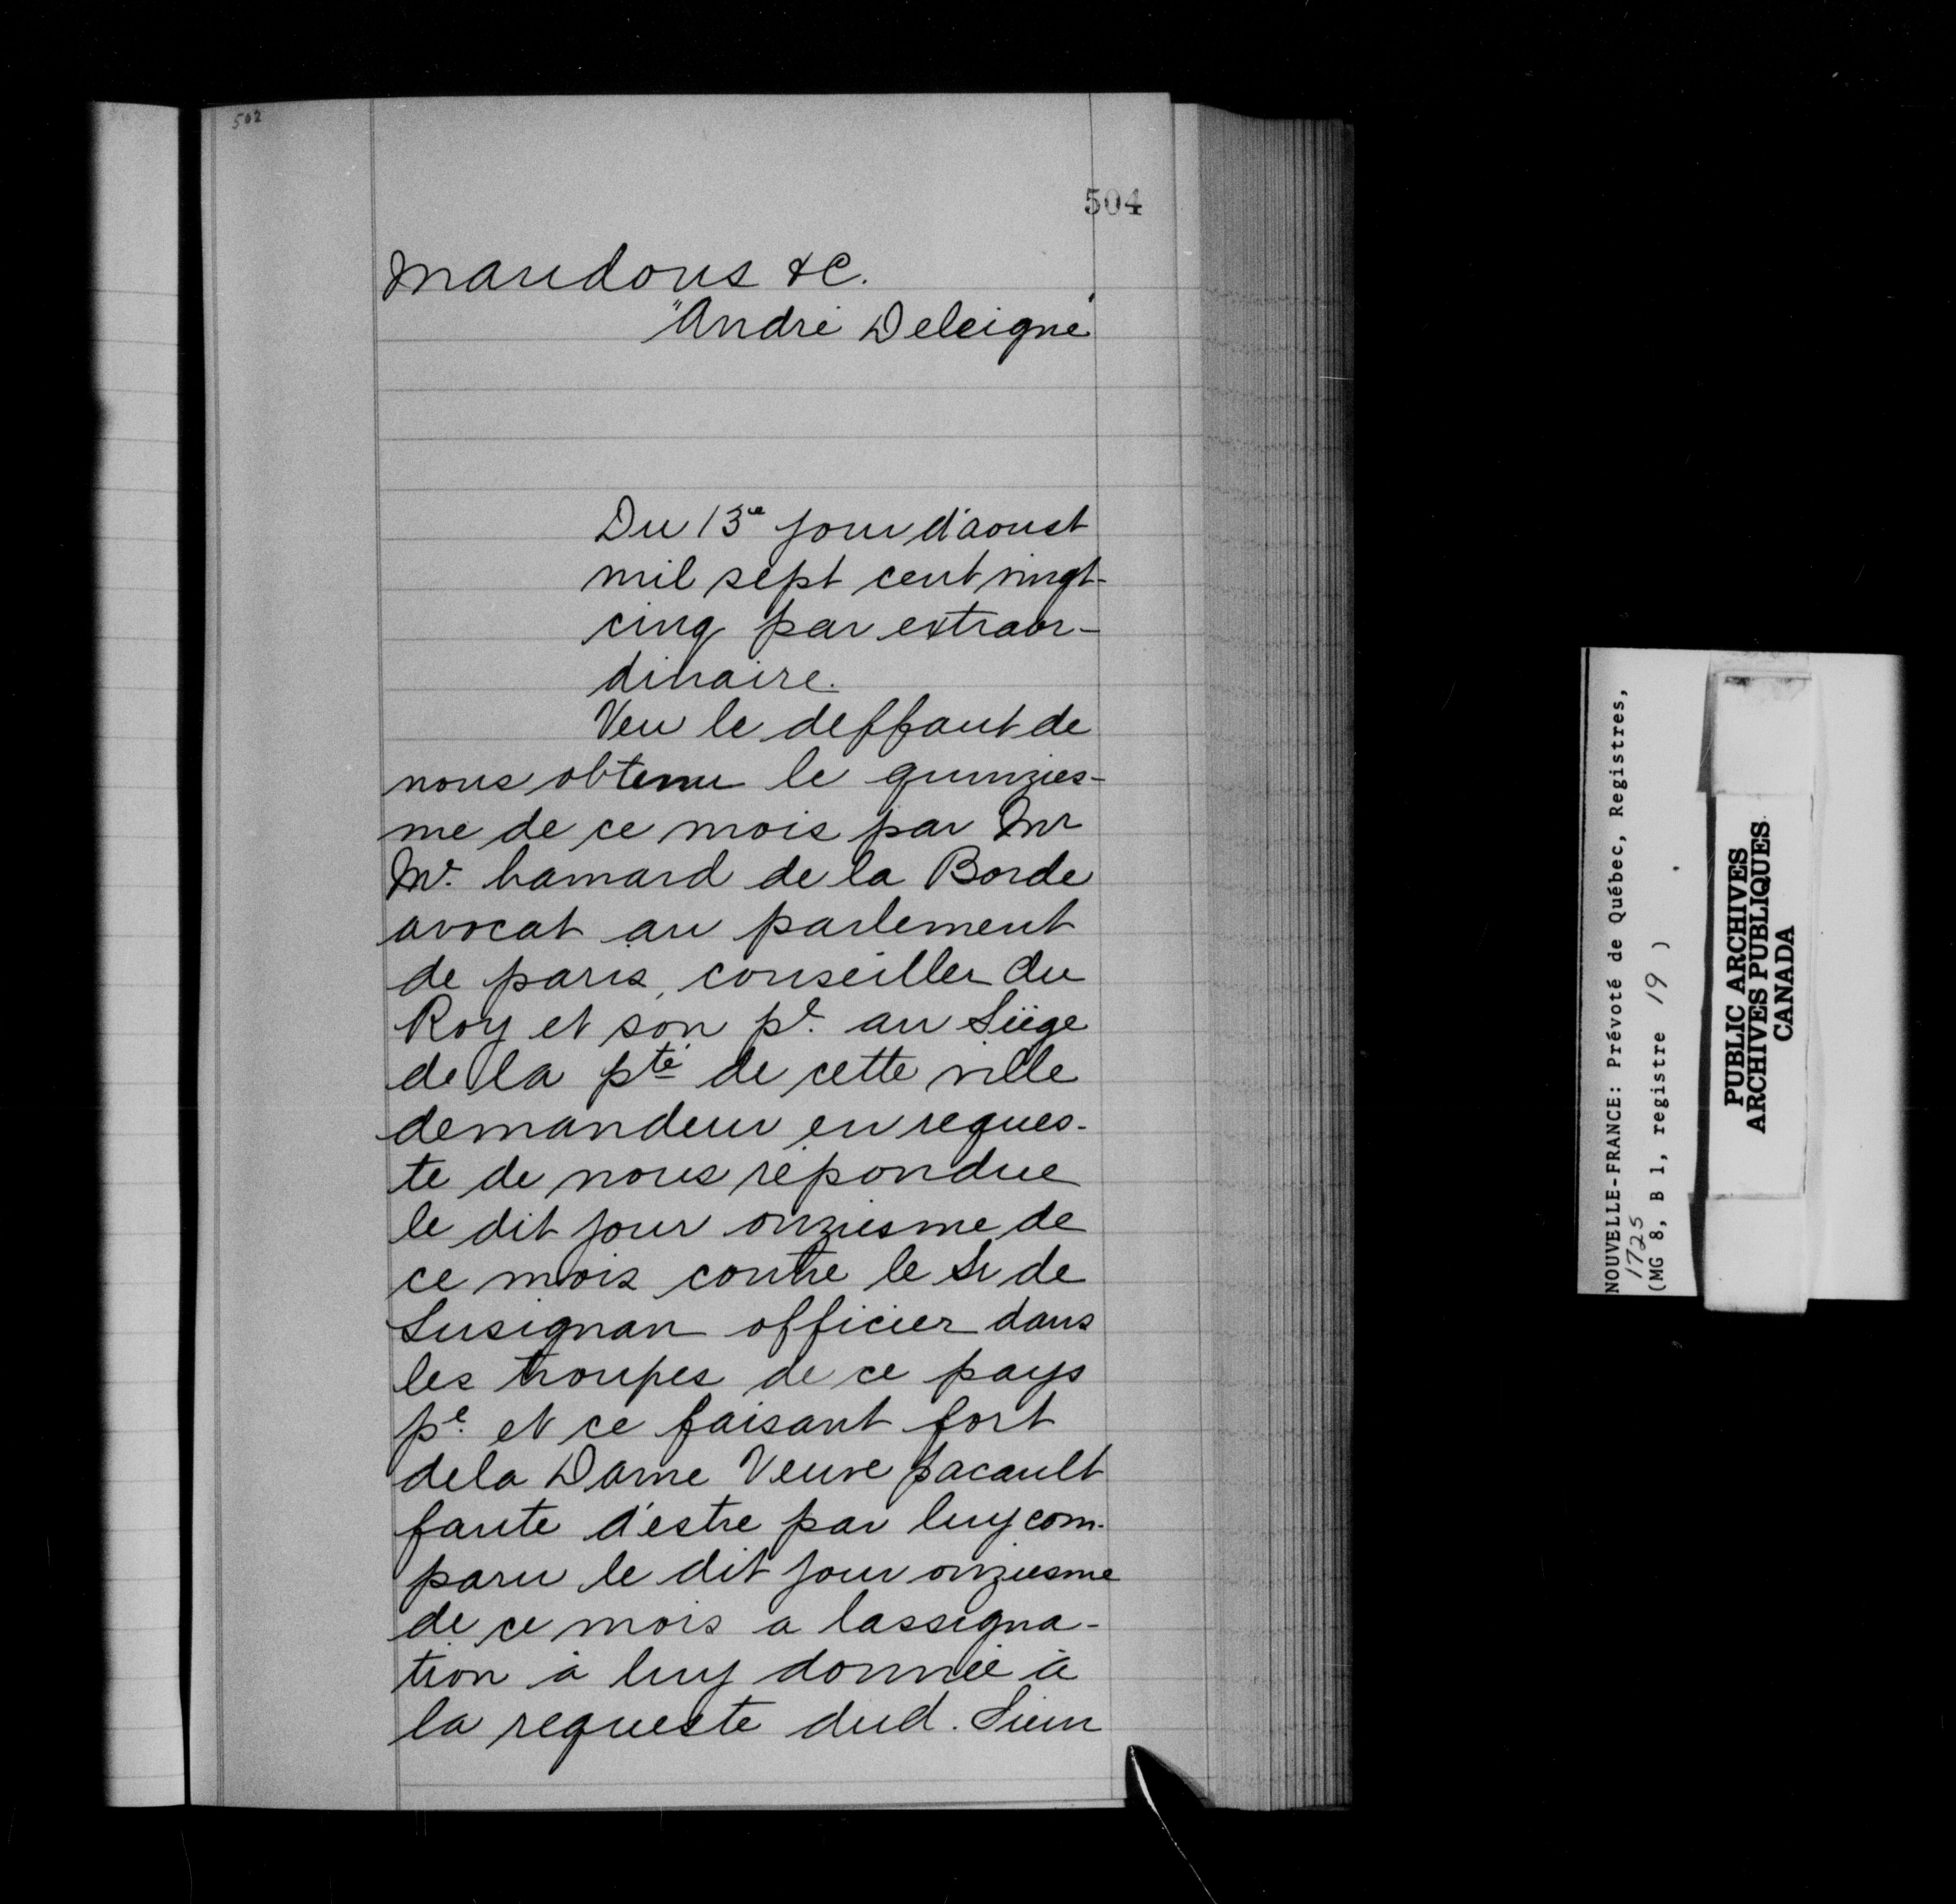 502
504
mandons &C.
"André Deleigne"
Du 13e jour d'aoust
mil sept cent vingt-
cinq par extraor-
dinaire.
Veu le deffaut de
nous obtenu le quinzies-
me de ce mois par Mr
Mr. hamard de la Borde
avocat au parlement
de paris, conseiller du
Roy et son pr. au Siège
de la pté de cette ville
demandeur en reques-
te de nous répondue
le dit jour onziesme de
ce mois contre le Sr de
Lusignan officier dans
les troupes de ce pays
pe. et ce faisant fort
dela Dame Veuve pacault
faute d'estre par luy com-
paru le dit jour onziesme
de ce mois a lassigna-
tion à luy donnée à
la requeste dud. Sieur
NOUVELLE-FRANCE: Prévoté de Québec, Registres,
1725
(MG 8, B 1, registre 19 )
PUBLIC ARCHIVES
ARCHIVES PUBLIQUES
CANADA